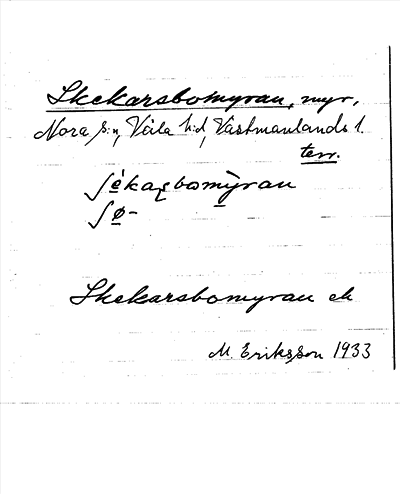 Skekarsbomyran, myr,
Nora s:n, Våla h:d, Västmanlands l.
terr.
ʃèkaʂbomỳran
ʃø̀-
Skekarsbomyran ek
M. Eriksson 1933